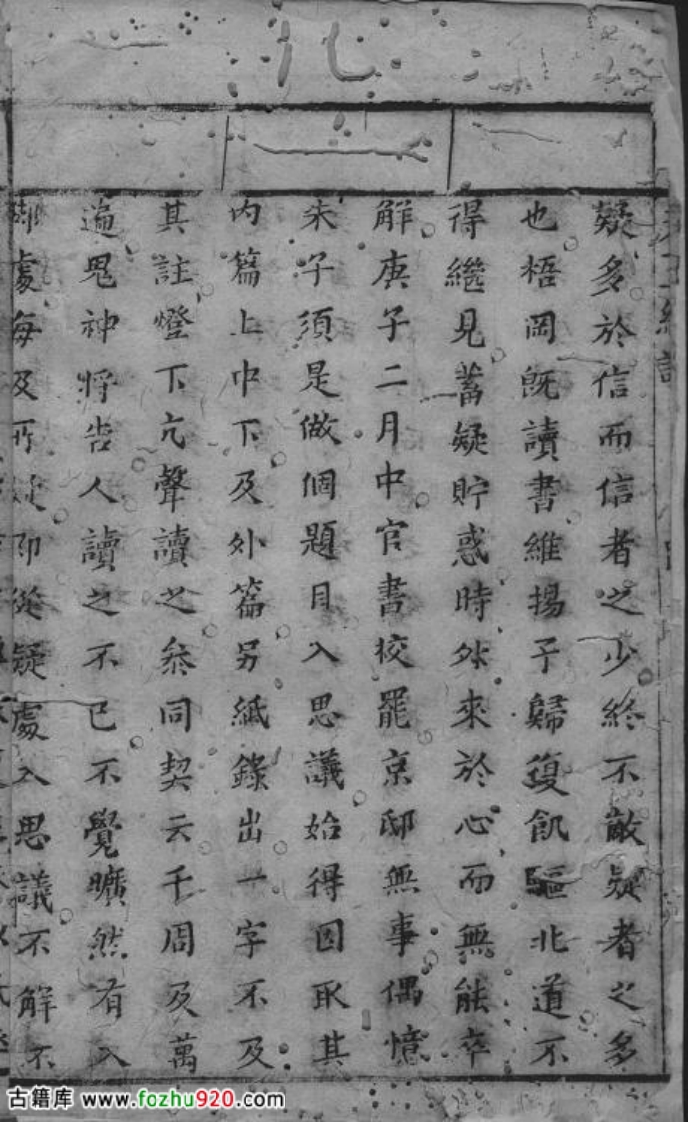 疑多於信而信者之少終不敵疑者之多
也梧岡既讀書維揚予歸復飢驅北道不
得繼見蓄疑貯惑時時來於心而無能卒
解庚子二月中官書校罷京邸無事偶憶
朱子須是做個題目入思議始得因取其
內篇上中下及外篇另紙錄出一字不及
其註燈下亢聲讀之叅同契云千周及萬
遍鬼神将告人讀之不已不覺曠然有入
處每及所疑即從疑處入思議不解不
古籍库 www.fozhu920.com